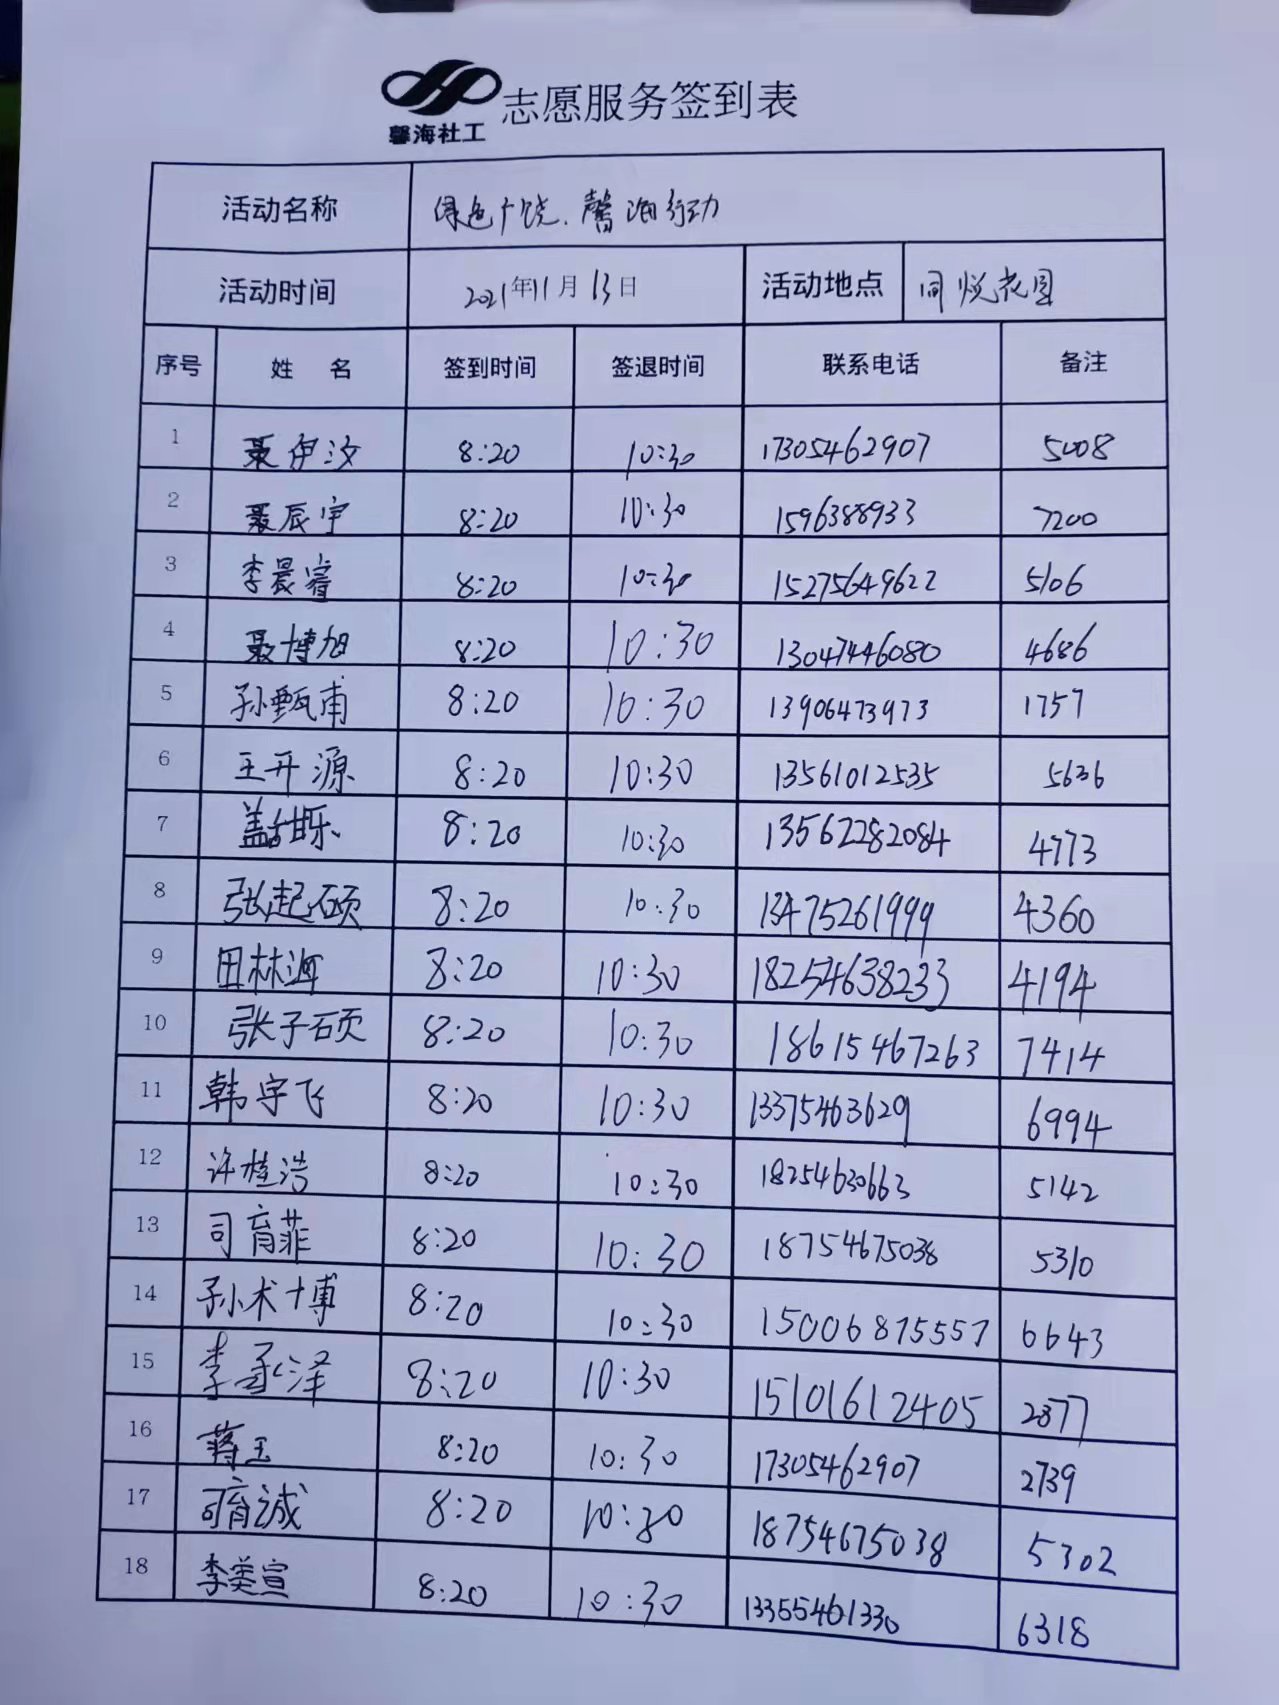 馨海社工
志愿服务签到表
活动名称 绿色广饶、馨海行动
活动时间 2021年11月13日 活动地点 同悦花园
序号 姓 名 签到时间 签退时间 联系电话 备注
1 聂伊汶 8:20 10:30 17305462907 5008
2 聂辰宇 8:20 10:30 1596388933 7200
3 李晨睿 8:20 10:30 15275649622 5106
4 聂博旭 8:20 10:30 13047446080 4686
5 孙甄甫 8:20 10:30 13906473973 1757
6 王开源 8:20 10:30 13561012535 5636
7 8:20 10:30 13562282084 4773
8 张起硕 8:20 10:30 13475261999 4360
9 田林海 8:20 10:30 18254638233 4194
10 张子硕 8:20 10:30 18615467263 7414
11 韩宇飞 8:20 10:30 13375463629 6994
12 许桂浩 8:20 10:30 18254630663 5142
13 司育菲 8:20 10:30 18754675038 5310
14 孙术博 8:20 10:30 15006875557 6643
15 李承泽 8:20 10:30 15101612405 2877
16 蒋玉 8:20 10:30 17305462907 2739
17 司育诚 8:20 10:30 18754675038 5302
18 李美宣 8:20 10:30 13355461330 6318